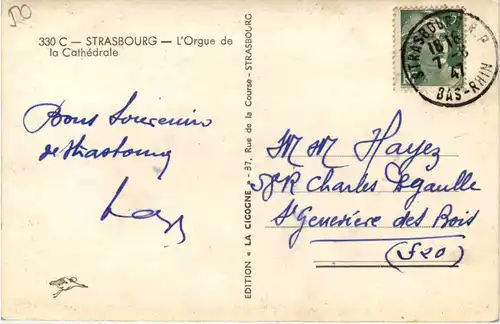 50
330 C — STRASBOURG — L'Orgue de
la Cathédrale
Bons Souvenirs
de Strasbourg
EDITION « LA CIGOGNE » - 37, Rue de la Course - STRASBOURG
STRASBOURG R.P.
18 15
7 - 8
47
BAS-RHIN
M M Hayez
58 R Charles Degaulle
St Geneviève des Bois
(S&O)